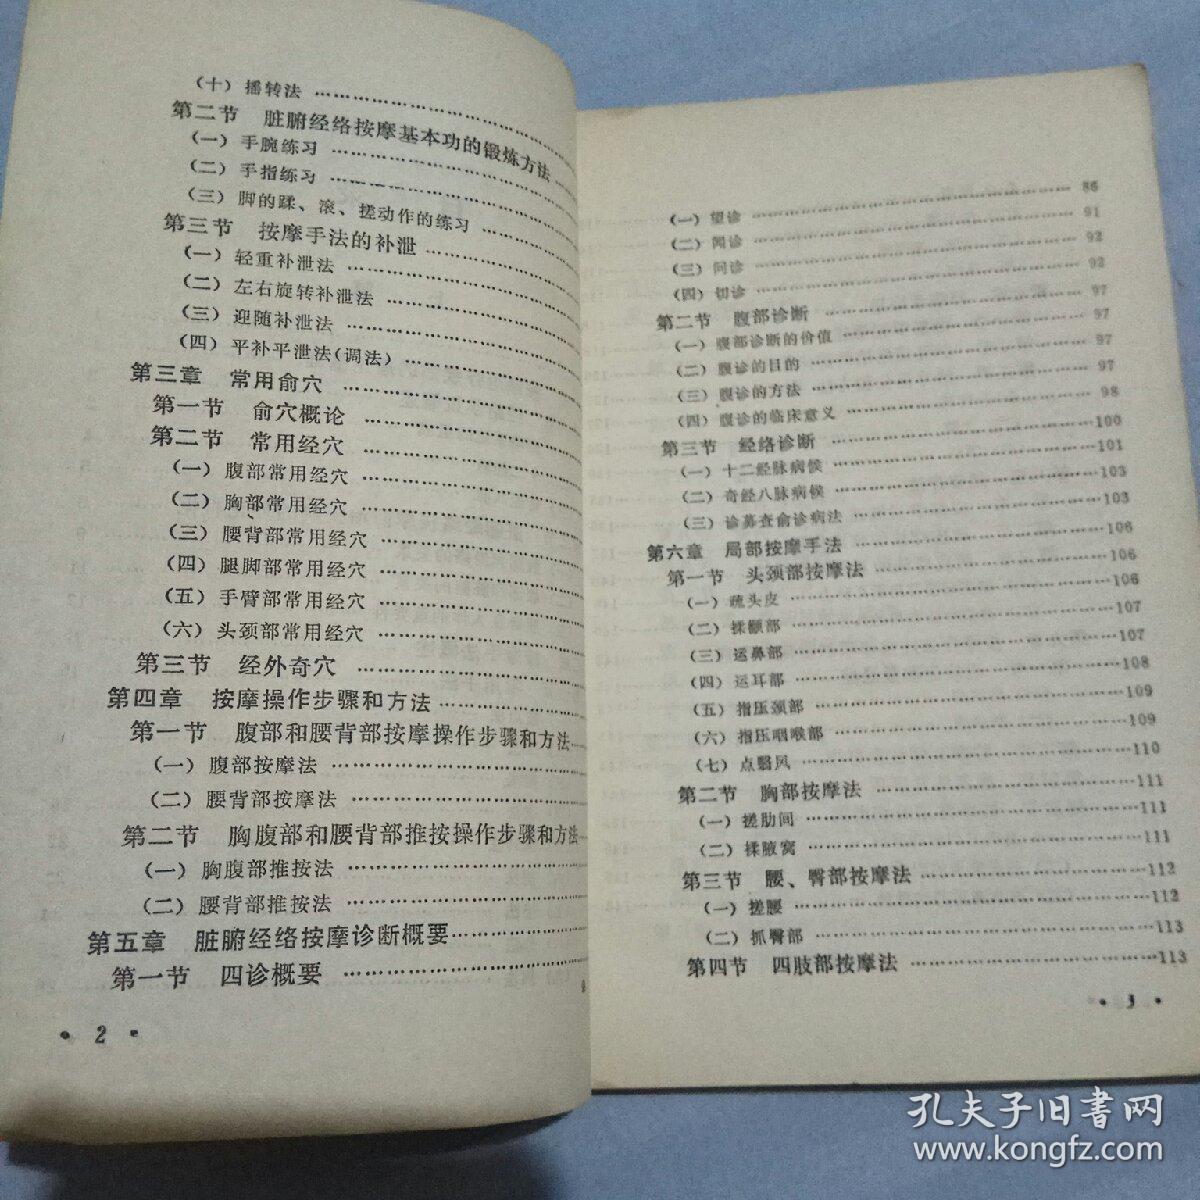 （十）摇转法 ………………
第二节 脏腑经络按摩基本功的锻炼方法 ……
（一）手腕练习 ………………
（二）手指练习 ………………
（三）脚的蹂、滚、搓动作的练习 ………………
第三节 按摩手法的补泄 ………………
（一）轻重补泄法 ………………
（二）左右旋转补泄法 ………………
（三）迎随补泄法 ………………
（四）平补平泄法（调法） ………………
第三章 常用俞穴 ………………
第一节 俞穴概论 ………………
第二节 常用经穴 ………………
（一）腹部常用经穴 ………………
（二）胸部常用经穴 ………………
（三）腰背部常用经穴 ………………
（四）腿脚部常用经穴 ………………
（五）手臂部常用经穴 ………………
（六）头颈部常用经穴 ………………
第三节 经外奇穴 ………………
第四章 按摩操作步骤和方法 ………………
第一节 腹部和腰背部按摩操作步骤和方法 ……
（一）腹部按摩法 ………………
（二）腰背部按摩法 ………………
第二节 胸腹部和腰背部推按操作步骤和方法 ……
（一）胸腹部推按法 ………………
（二）腰背部推按法 ………………
第五章 脏腑经络按摩诊断概要 ………………
第一节 四诊概要 ………………
· 2 ·
（一）望诊 ……………… 86
（二）闻诊 ……………… 91
（三）问诊 ……………… 92
（四）切诊 ……………… 92
第二节 腹部诊断 ……………… 97
（一）腹部诊断的价值 ……………… 97
（二）腹诊的目的 ……………… 97
（三）腹诊的方法 ……………… 97
（四）腹诊的临床意义 ……………… 98
第三节 经络诊断 ……………… 100
（一）十二经脉病候 ……………… 101
（二）奇经八脉病候 ……………… 103
（三）诊募查俞诊病法 ……………… 103
第六章 局部按摩手法 ……………… 106
第一节 头颈部按摩法 ……………… 106
（一）疏头皮 ……………… 106
（二）揉颞部 ……………… 107
（三）运鼻部 ……………… 107
（四）运耳部 ……………… 108
（五）指压颈部 ……………… 109
（六）指压咽喉部 ……………… 109
（七）点翳风 ……………… 110
第二节 胸部按摩法 ……………… 111
（一）搓肋间 ……………… 111
（二）揉腋窝 ……………… 111
第三节 腰、臀部按摩法 ……………… 112
（一）搓腰 ……………… 112
（二）抓臀部 ……………… 113
第四节 四肢部按摩法 ……………… 113
· 3 ·
孔夫子旧书网
www.kongfz.com